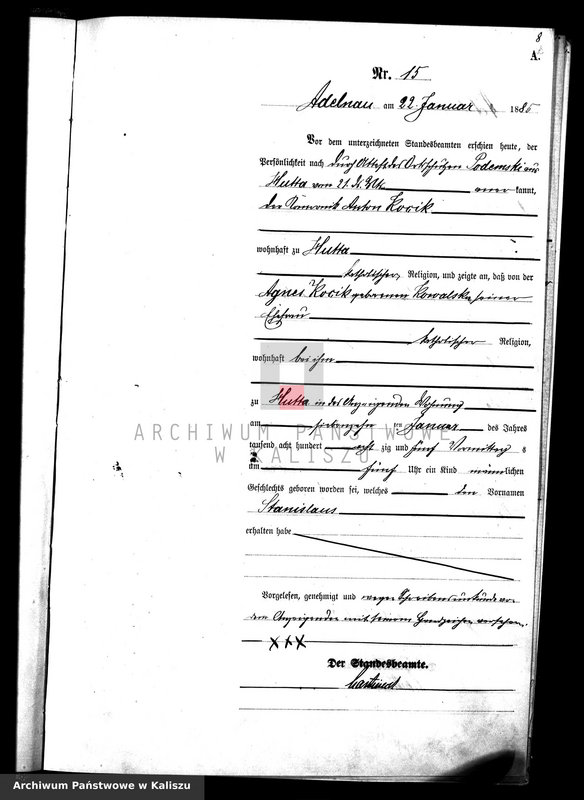 8
A.
Nr. 15
Adelnau am 22. Januar 1885
Vor dem unterzeichneten Standesbeamten erschien heute, der
Persönlichkeit nach durch Attest des Ortsschulzen Podemski aus
Hutta vom 21. d. Mts. aner kannt,
der Anton Kocik
wohnhaft zu Hutta
katholischer Religion, und zeigte an, daß von der
Agnes Kocik geborenen Kowalska seiner
Ehefrau
katholischer Religion,
wohnhaft bei ihm
zu Hutta in des Anzeigenden Wohnung
am siebenzehn ten Januar des Jahres
tausend acht hundert acht zig und fünf Vormittag s
um fünf Uhr ein Kind männlichen
Geschlechts geboren worden sei, welches den Vornamen
Stanislaus
erhalten habe
Vorgelesen, genehmigt und wegen Schreibensunkunde von
dem Anzeigenden mit seinem Handzeichen versehen.
XXX
Der Standesbeamte.
ARCHIWUM PAŃSTWOWE
W KALISZU
Archiwum Państwowe w Kaliszu